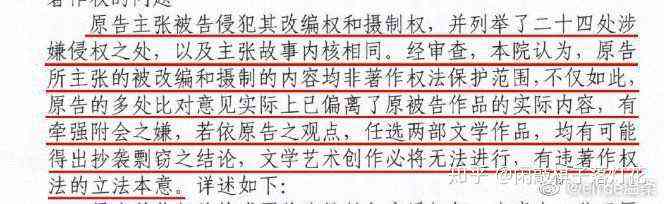 原告主张被告侵犯其改编权和摄制权，并列举了二十四处涉
嫌侵权之处，以及主张故事内核相同。经审查，本院认为，原告
所主张的被改编和摄制的内容均非著作权法保护范围，不仅如此，
原告的多处比对意见实际上已偏离了原被告作品的实际内容，有
牵强附会之嫌，若依原告之观点，任选两部文学作品，均有可能
得出抄袭剽窃之结论，文学艺术创作必将无法进行，有违著作权
法的立法本意。详述如下：